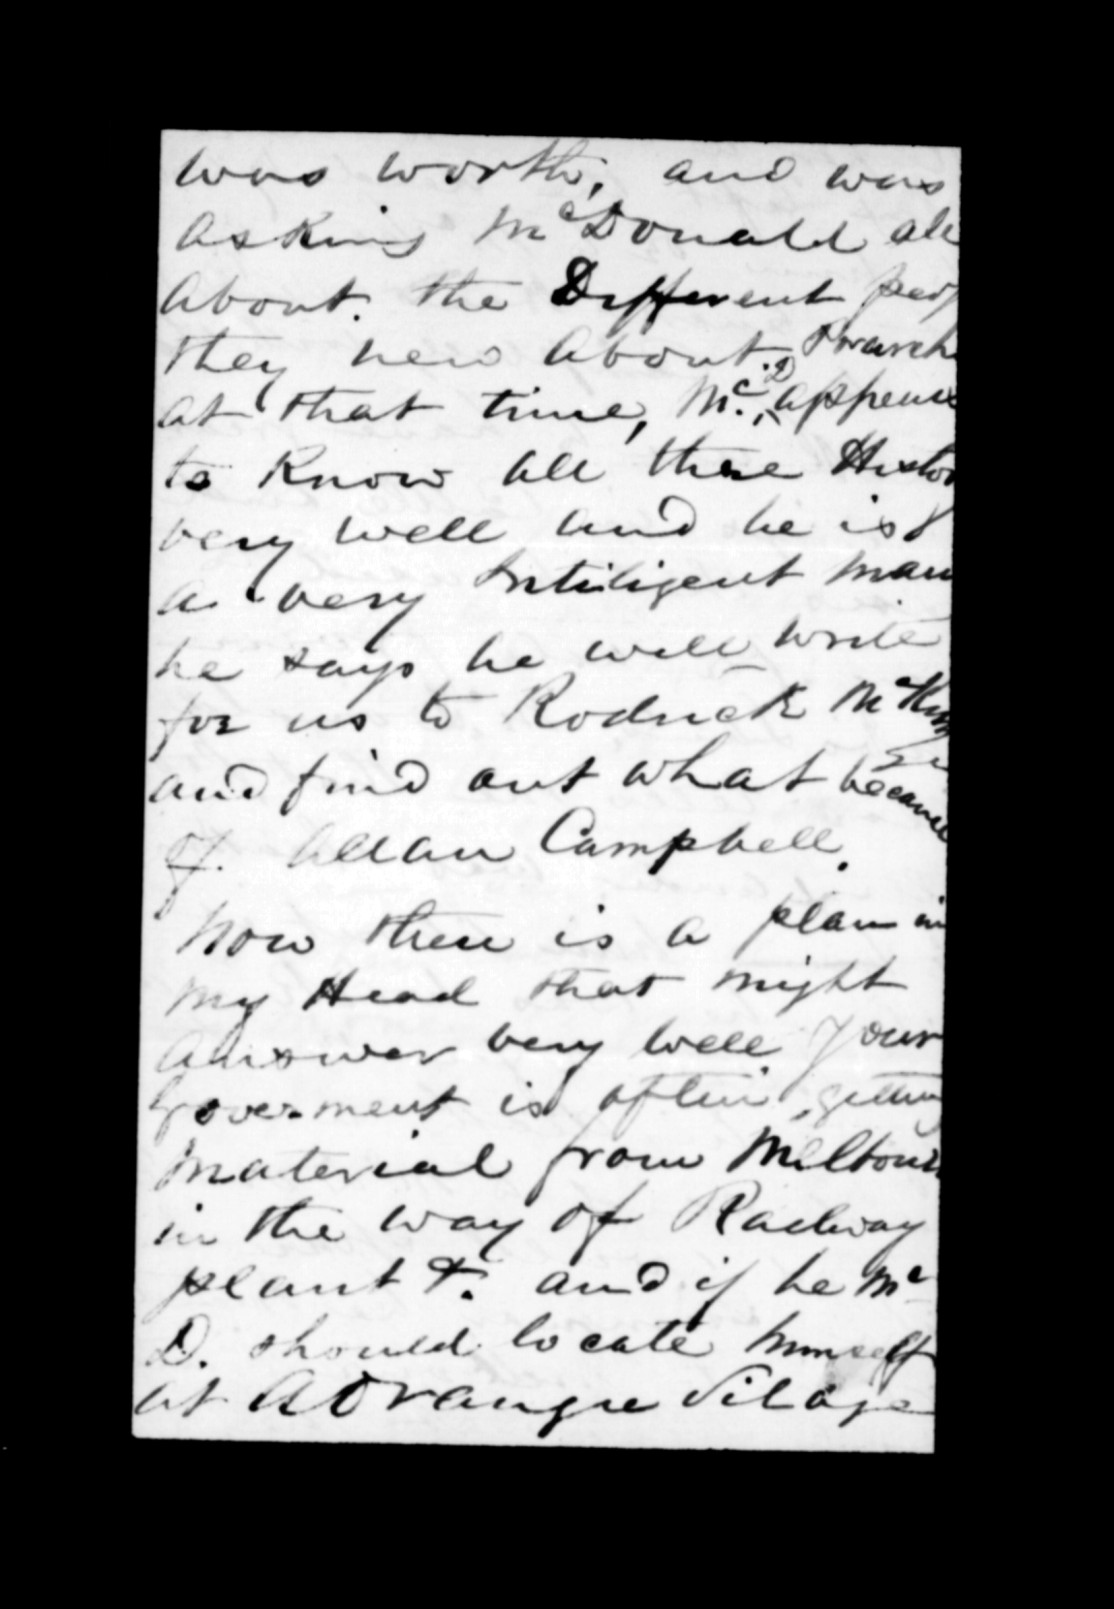 was worth, and was
asking McDonald all
about. the Different
they new about.
at that time, Mc. D appears
to Know all these Histor
very well and he is
a very Intiligent man
he says he will write
for us to Rodrick McKin
and find out what became
of. Allan Campbell.
Now there is a plan in
my Head that might
answer very well your
Goverment is often getting
material from Melbourn
in the way of Railway
plant &. and if he Mc
D. should locate himself
at Aorangie Vilage